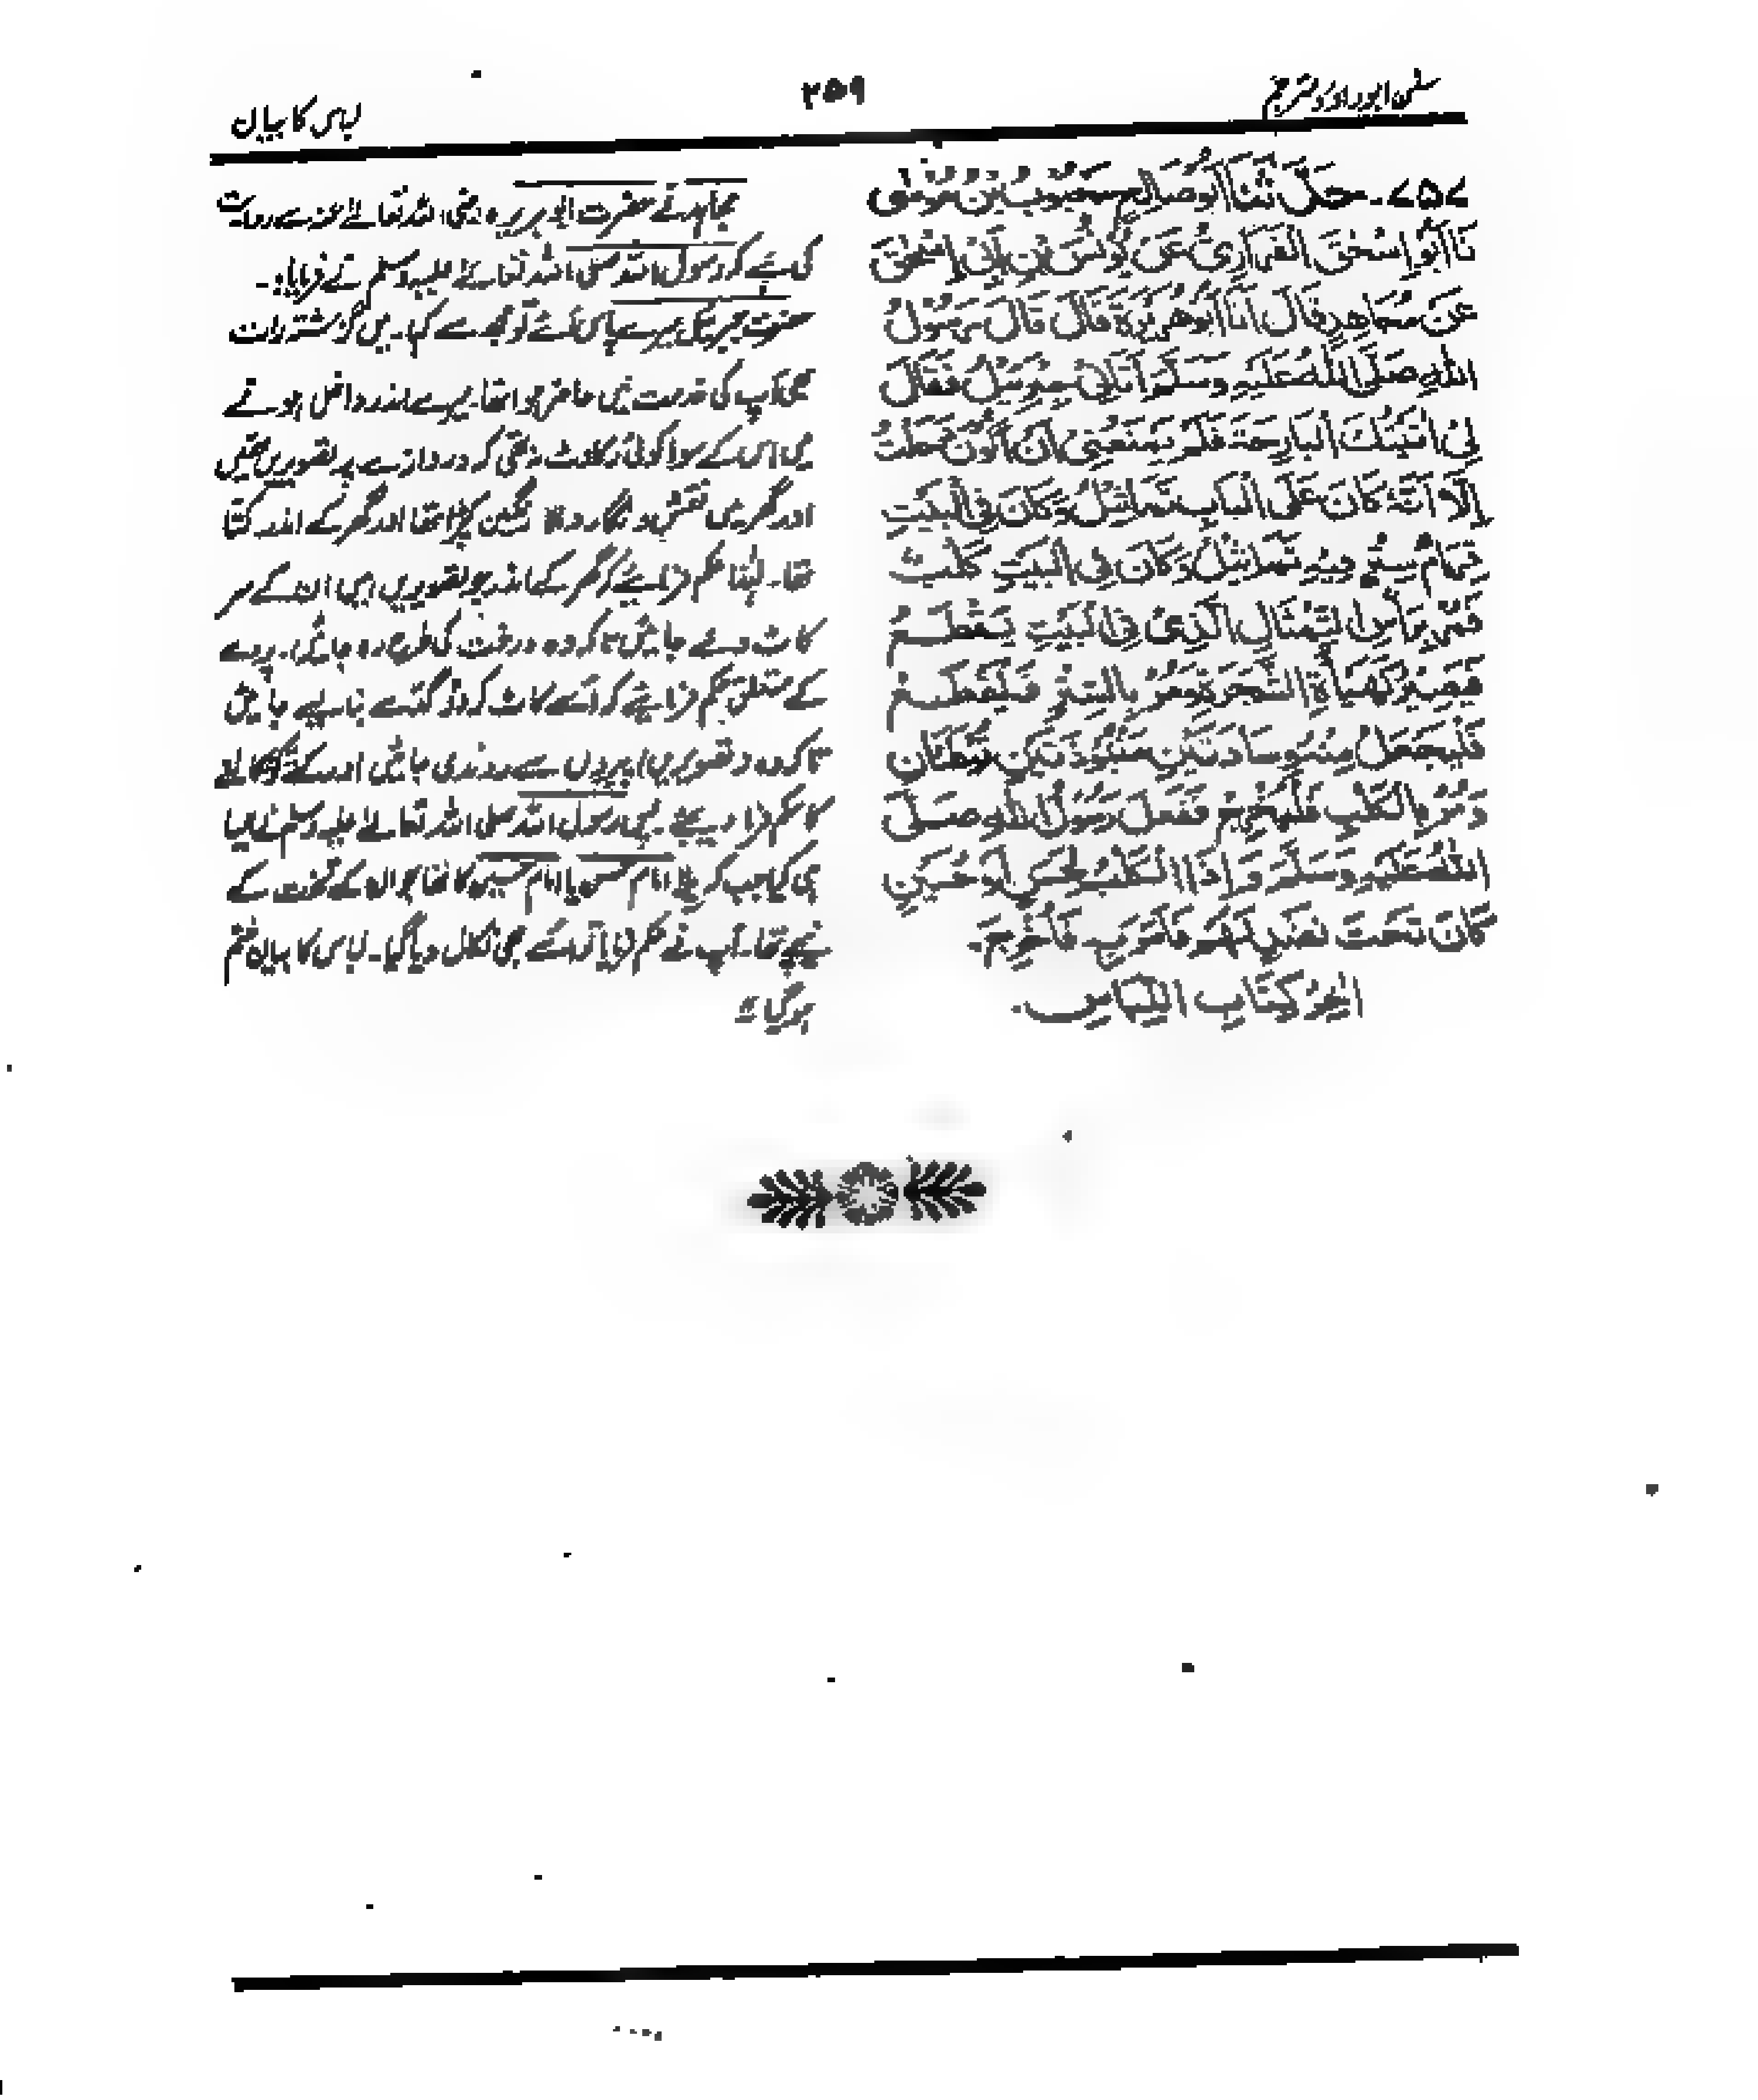 سنن ابوداؤد مترجم
۲۵۹
لباس کا بیان
۷۵۷۔ حَدَّثَنَا أَبُو صَالِحٍ مَحْبُوبُ بْنُ مُوسٰى
نَا أَبُو إِسْحٰقَ الْفَزَارِيُّ عَنْ يُونُسَ بْنِ أَبِي إِسْحٰقَ
عَنْ مُجَاهِدٍ قَالَ نَا أَبُو هُرَيْرَةَ قَالَ قَالَ رَسُولُ
اللهِ صَلَّى اللهُ عَلَيْهِ وَسَلَّمَ أَتَانِي جِبْرِيلُ فَقَالَ
لِي أَتَيْتُكَ الْبَارِحَةَ فَلَمْ يَمْنَعْنِي أَنْ أَكُونَ دَخَلْتُ
إِلَّا أَنَّهُ كَانَ عَلَى الْبَابِ تَمَاثِيلُ وَكَانَ فِي الْبَيْتِ
قِرَامُ سِتْرٍ فِيهِ تَمَاثِيلُ وَكَانَ فِي الْبَيْتِ كَلْبٌ
فَمُرْ بِرَأْسِ التِّمْثَالِ الَّذِي فِي الْبَيْتِ يُقْطَعُ
فَيَصِيرُ كَهَيْأَةِ الشَّجَرَةِ وَمُرْ بِالسِّتْرِ فَلْيُقْطَعْ
فَلْيُجْعَلْ مِنْهُ وِسَادَتَيْنِ مَنْبُوذَتَيْنِ تُوطَآنِ
وَمُرْ بِالْكَلْبِ فَلْيُخْرَجْ فَفَعَلَ رَسُولُ اللهِ صَلَّى
اللهُ عَلَيْهِ وَسَلَّمَ وَإِذَا الْكَلْبُ لِحَسَنٍ أَوْ حُسَيْنٍ
كَانَ تَحْتَ نَضَدٍ لَهُمْ فَأَمَرَ بِهِ فَأُخْرِجَ۔
اٰخِرُ كِتَابِ اللِّبَاسِ۔
مجاہد نے حضرت ابو ہریرہ رضی اللہ تعالیٰ عنہ سے روایت
کی ہے کہ رسول اللہ صلی اللہ تعالیٰ علیہ وسلم نے فرمایا:۔
حضرت جبریل میرے پاس آئے تو مجھ سے کہا۔ میں گزشتہ رات
بھی آپ کی خدمت میں حاضر ہوا تھا۔ میرے اندر داخل ہونے
میں اس کے سوا کوئی رکاوٹ نہ تھی کہ دروازے پر تصویریں تھیں
اور گھر میں نقش و نگار والا رنگین پردہ تھا اور گھر کے اندر کتا
تھا۔ لہٰذا حکم فرمائیے کہ گھر کے اندر جو تصویریں ہیں ان کے سر
کاٹ دئے جائیں تاکہ وہ درخت کی طرح رہ جائیں۔ پردے
کے متعلق حکم فرمائیے کہ اُسے کاٹ کر دو گدے بنا لیے جائیں
تاکہ وہ (تصویریں) پیروں سے روندی جائیں اور کتے کو نکالنے
کا حکم فرما دیجئے۔ پس رسول اللہ صلی اللہ تعالیٰ علیہ وسلم نے ایسا
ہی کیا جب کہ پلا امام حسن یا امام حسین کا تھا جو ان کے تخت کے
نیچے تھا۔ آپ نے حکم فرمایا تو اُسے بھی نکال دیا گیا۔ لباس کا بیان ختم
ہو گیا۔